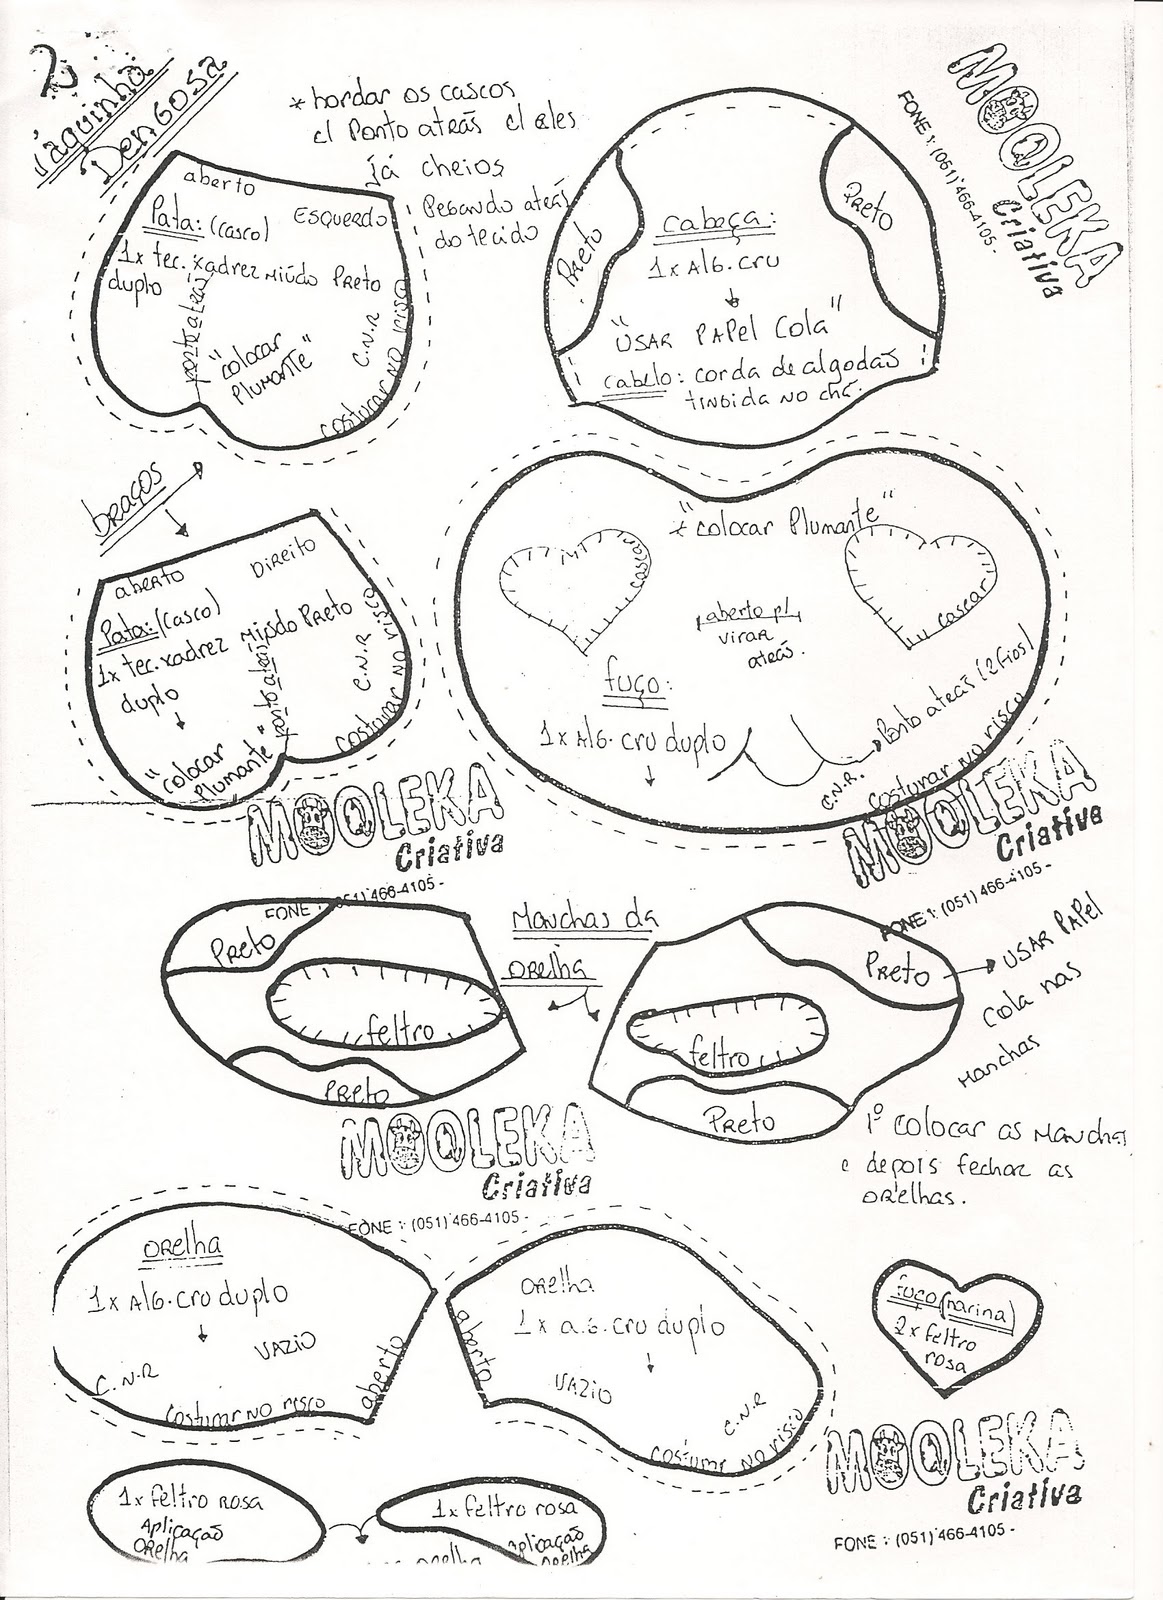 2
Vaquinha
Dengosa
* bordar os cascos
c/ Ponto atrás c/ eles
já cheios
Pegando atrás
do tecido
MOOLEKA
Criativa
FONE : (051) 466-4105 -
aberto
Pata: (casco)
ESQUERDO
1x tec. xadrez Miúdo Preto
duplo
ponto atrás
"colocar
Plumante"
C.N.R
costurar no risco
Preto
Cabeça:
1x Alg. cru
"USAR PAPel Cola"
cabelo: corda de algodão
tingida no chá.
Preto
braços
aberto
Direito
Pata: (casco)
1x tec. xadrez Miúdo Preto
duplo
ponto atrás
"colocar
Plumante"
C.N.R
costurar no risco
* "colocar Plumante"
cascar
cascar
aberto p/
virar
atrás.
fuço:
1x Alg. cru duplo
Ponto atrás (2 fios)
C.N.R.
costurar no risco
MOOLEKA
Criativa
FONE : (051) 466-4105 -
MOOLEKA
Criativa
FONE : (051) 466-4105 -
Preto
feltro
Preto
Manchas da
orelha
Preto
feltro
Preto
USAR PAPel
Cola nas
Manchas
1º colocar as Manchas
e depois fechar as
orelhas.
MOOLEKA
Criativa
FONE : (051) 466-4105 -
orelha
1x Alg. cru duplo
VAZIO
C.N.R
costurar no risco
aberto
orelha
1x alg. cru duplo
aberto
VAZIO
C.N.R
costurar no risco
fuço (narina)
2x feltro
rosa
MOOLEKA
Criativa
FONE : (051) 466-4105 -
1x feltro rosa
Aplicação
Orelha
1x feltro rosa
Aplicação
orelha
orelha